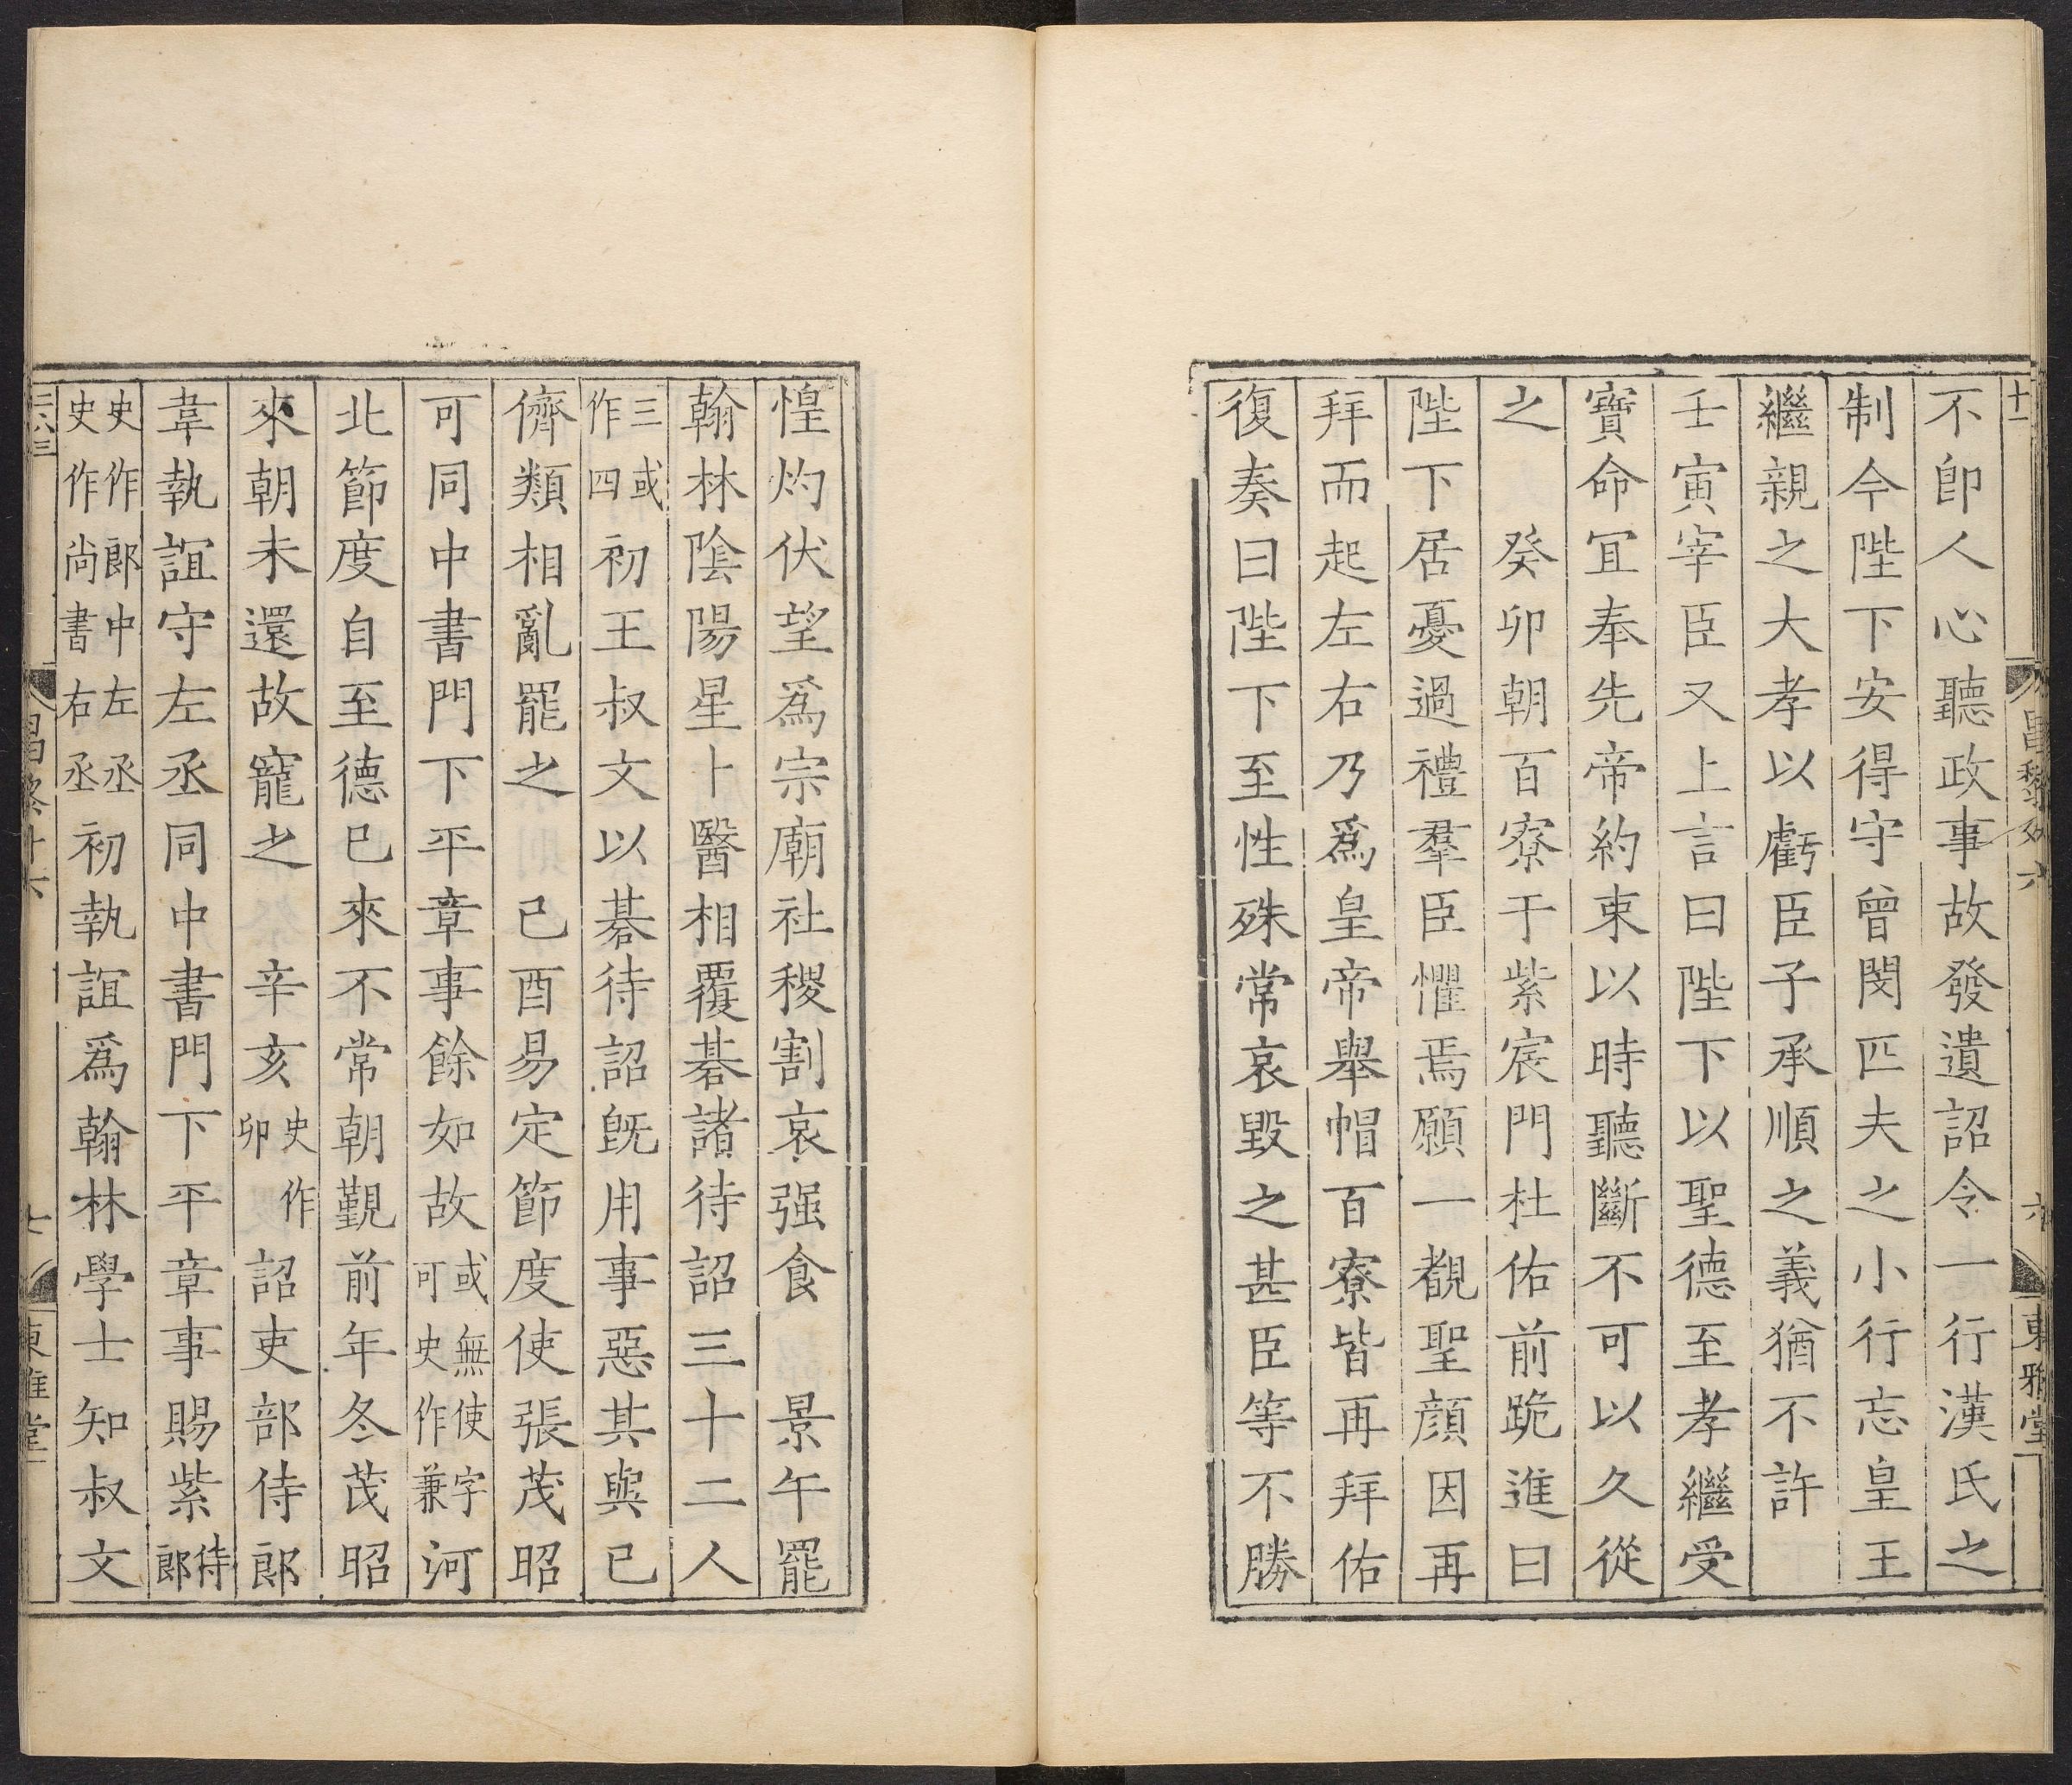 十一 昌黎外六 六 東雅堂
不卽人心聽政事故發遺詔令一行漢氏之
制今陛下安得守曾閔匹夫之小行忘皇王
繼親之大孝以虧臣子承順之義猶不許
壬寅宰臣又上言曰陛下以聖德至孝繼受
寶命冝奉先帝約束以時聽斷不可以久從
之　癸卯朝百寮于紫宸門杜佑前跪進曰
陛下居憂過禮羣臣懼焉願一覩聖顔因再
拜而起左右乃爲皇帝舉帽百寮皆再拜佑
復奏曰陛下至性殊常哀毀之甚臣等不勝
惶灼伏望爲宗廟社稷割哀强食　景午罷
翰林陰陽星卜醫相覆碁諸待詔三十二人
三或作四初王叔文以碁待詔旣用事惡其與已
儕類相亂罷之　已酉易定節度使張茂昭
可同中書門下平章事餘如故或無使字可史作兼河
北節度自至德已來不常朝覲前年冬茂昭
來朝未還故寵之　辛亥史作卯詔吏部侍郞
韋執誼守左丞同中書門下平章事賜紫侍郞
史作郞中左丞史作尚書右丞初執誼爲翰林學士知叔文
七 東雅堂